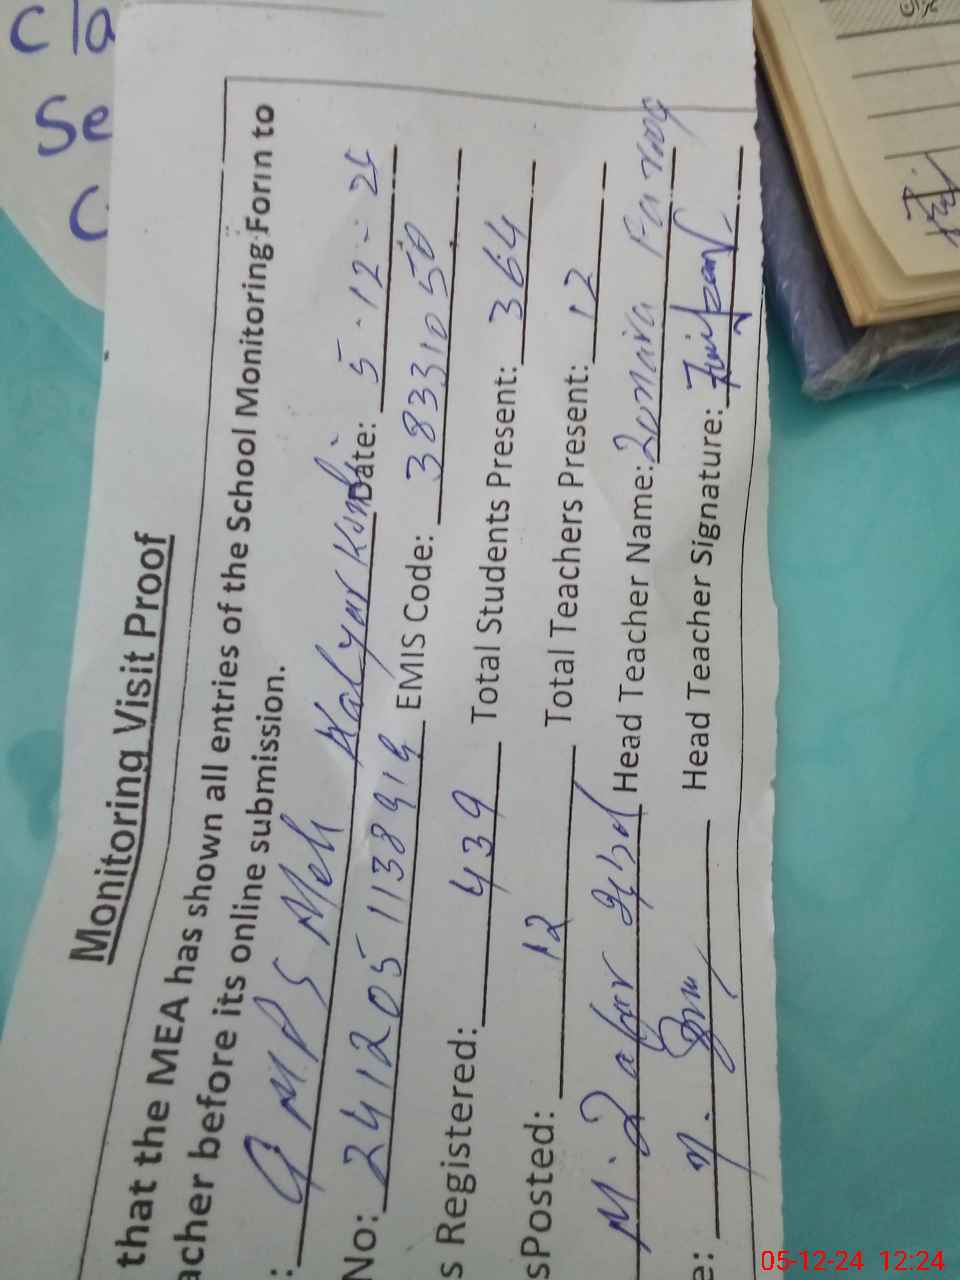 Cla
Se
C
Monitoring Visit Proof
that the MEA has shown all entries of the School Monitoring Form to
acher before its online submission.
: GMPS Meh Kalyar Date: 5-12-24
No: 241205113891 EMIS Code: 38331050
s Registered: 439 Total Students Present: 364
sPosted: 12 Total Teachers Present: 12
M. Zafar Head Teacher Name:
e: Head Teacher Signature:
05-12-24 12:24